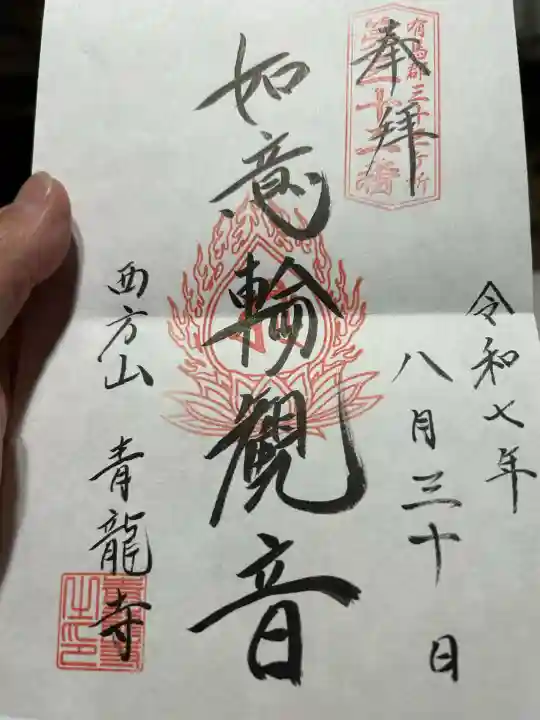 奉拝
有馬郡三十三ヶ所
令和七年
八月三十日
如意輪観音
西方山 青龍寺